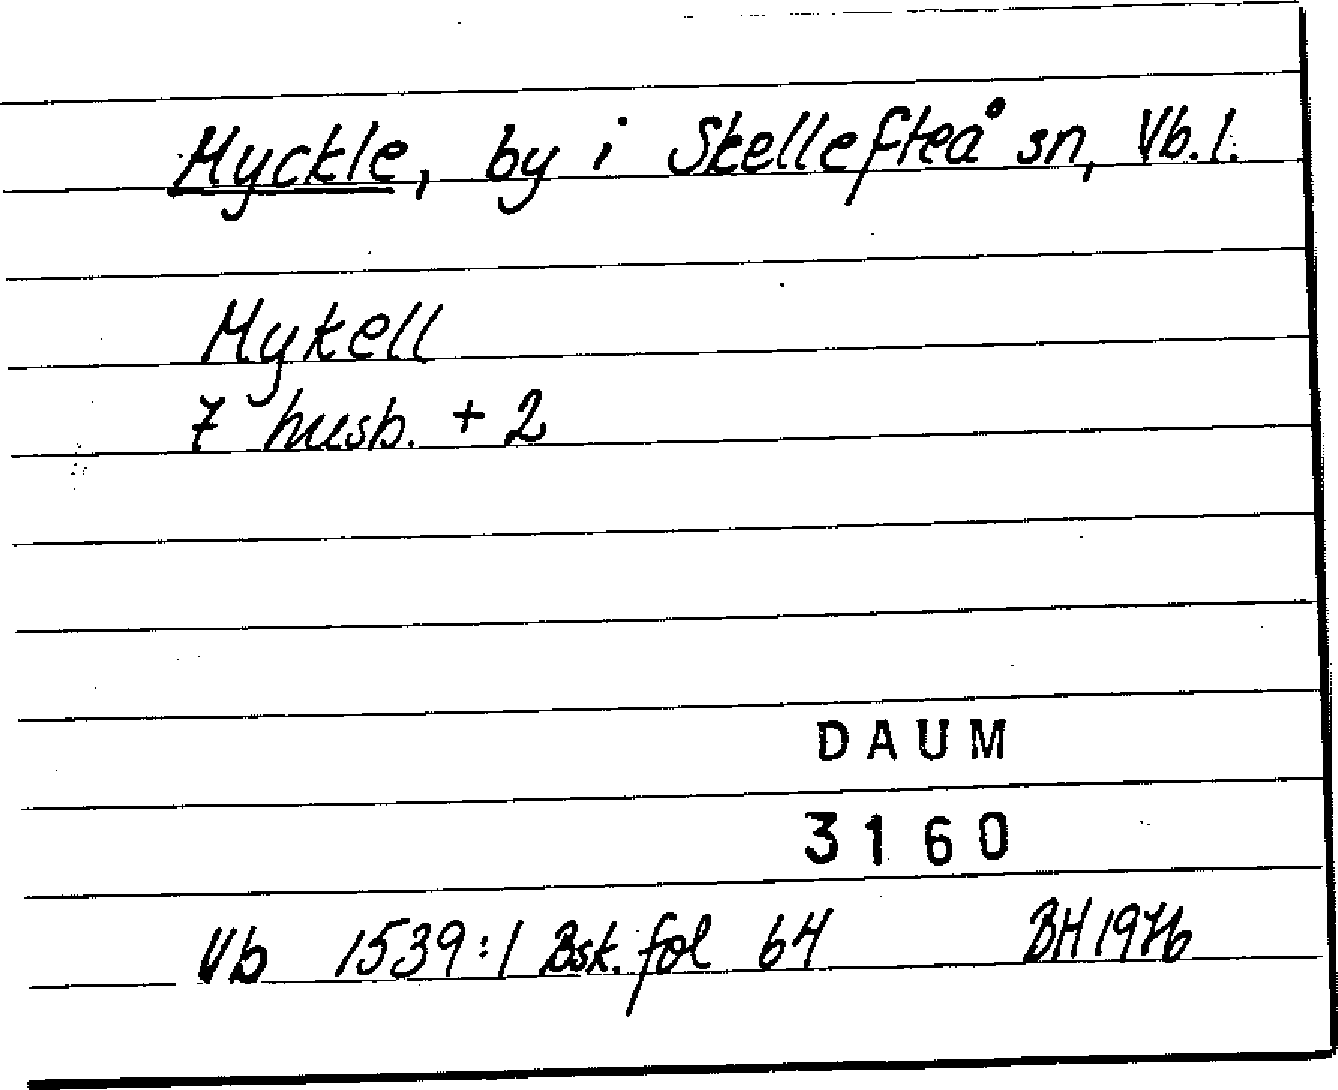 Myckle, by i Skellefteå sn, Vb.l.
Mykell
7 husb. + 2
DAUM
3160
Vb 1539:1 Bsk. fol 64 BH 1976